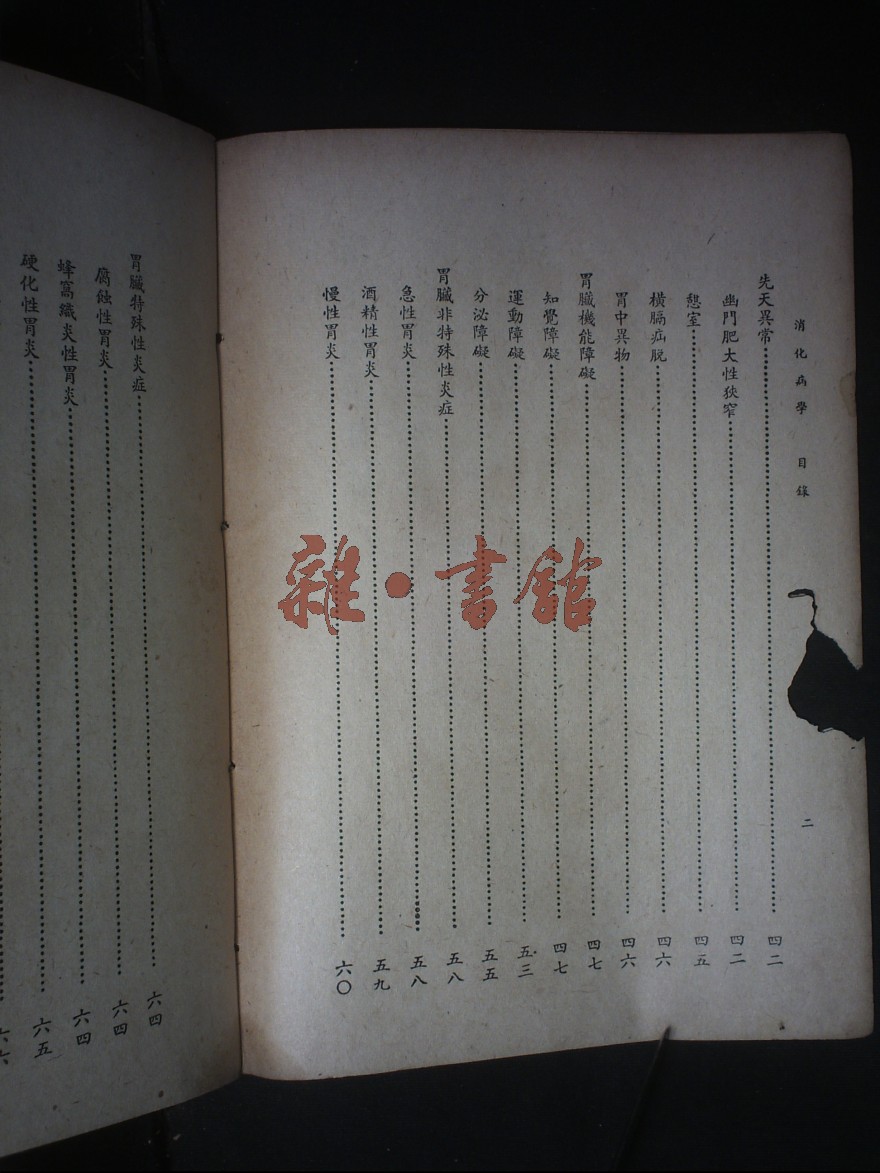 消化病學 目錄 二
先天異常 四二
幽門肥大性狹窄 四二
憩室 四五
橫膈疝脫 四六
胃中異物 四六
胃臟機能障礙 四七
知覺障礙 四七
運動障礙 五三
分泌障礙 五五
胃臟非特殊性炎症 五八
急性胃炎 五八
酒精性胃炎 五九
慢性胃炎 六〇
胃臟特殊性炎症 六四
腐蝕性胃炎 六四
蜂窩織炎性胃炎 六四
硬化性胃炎 六五
雜·書館